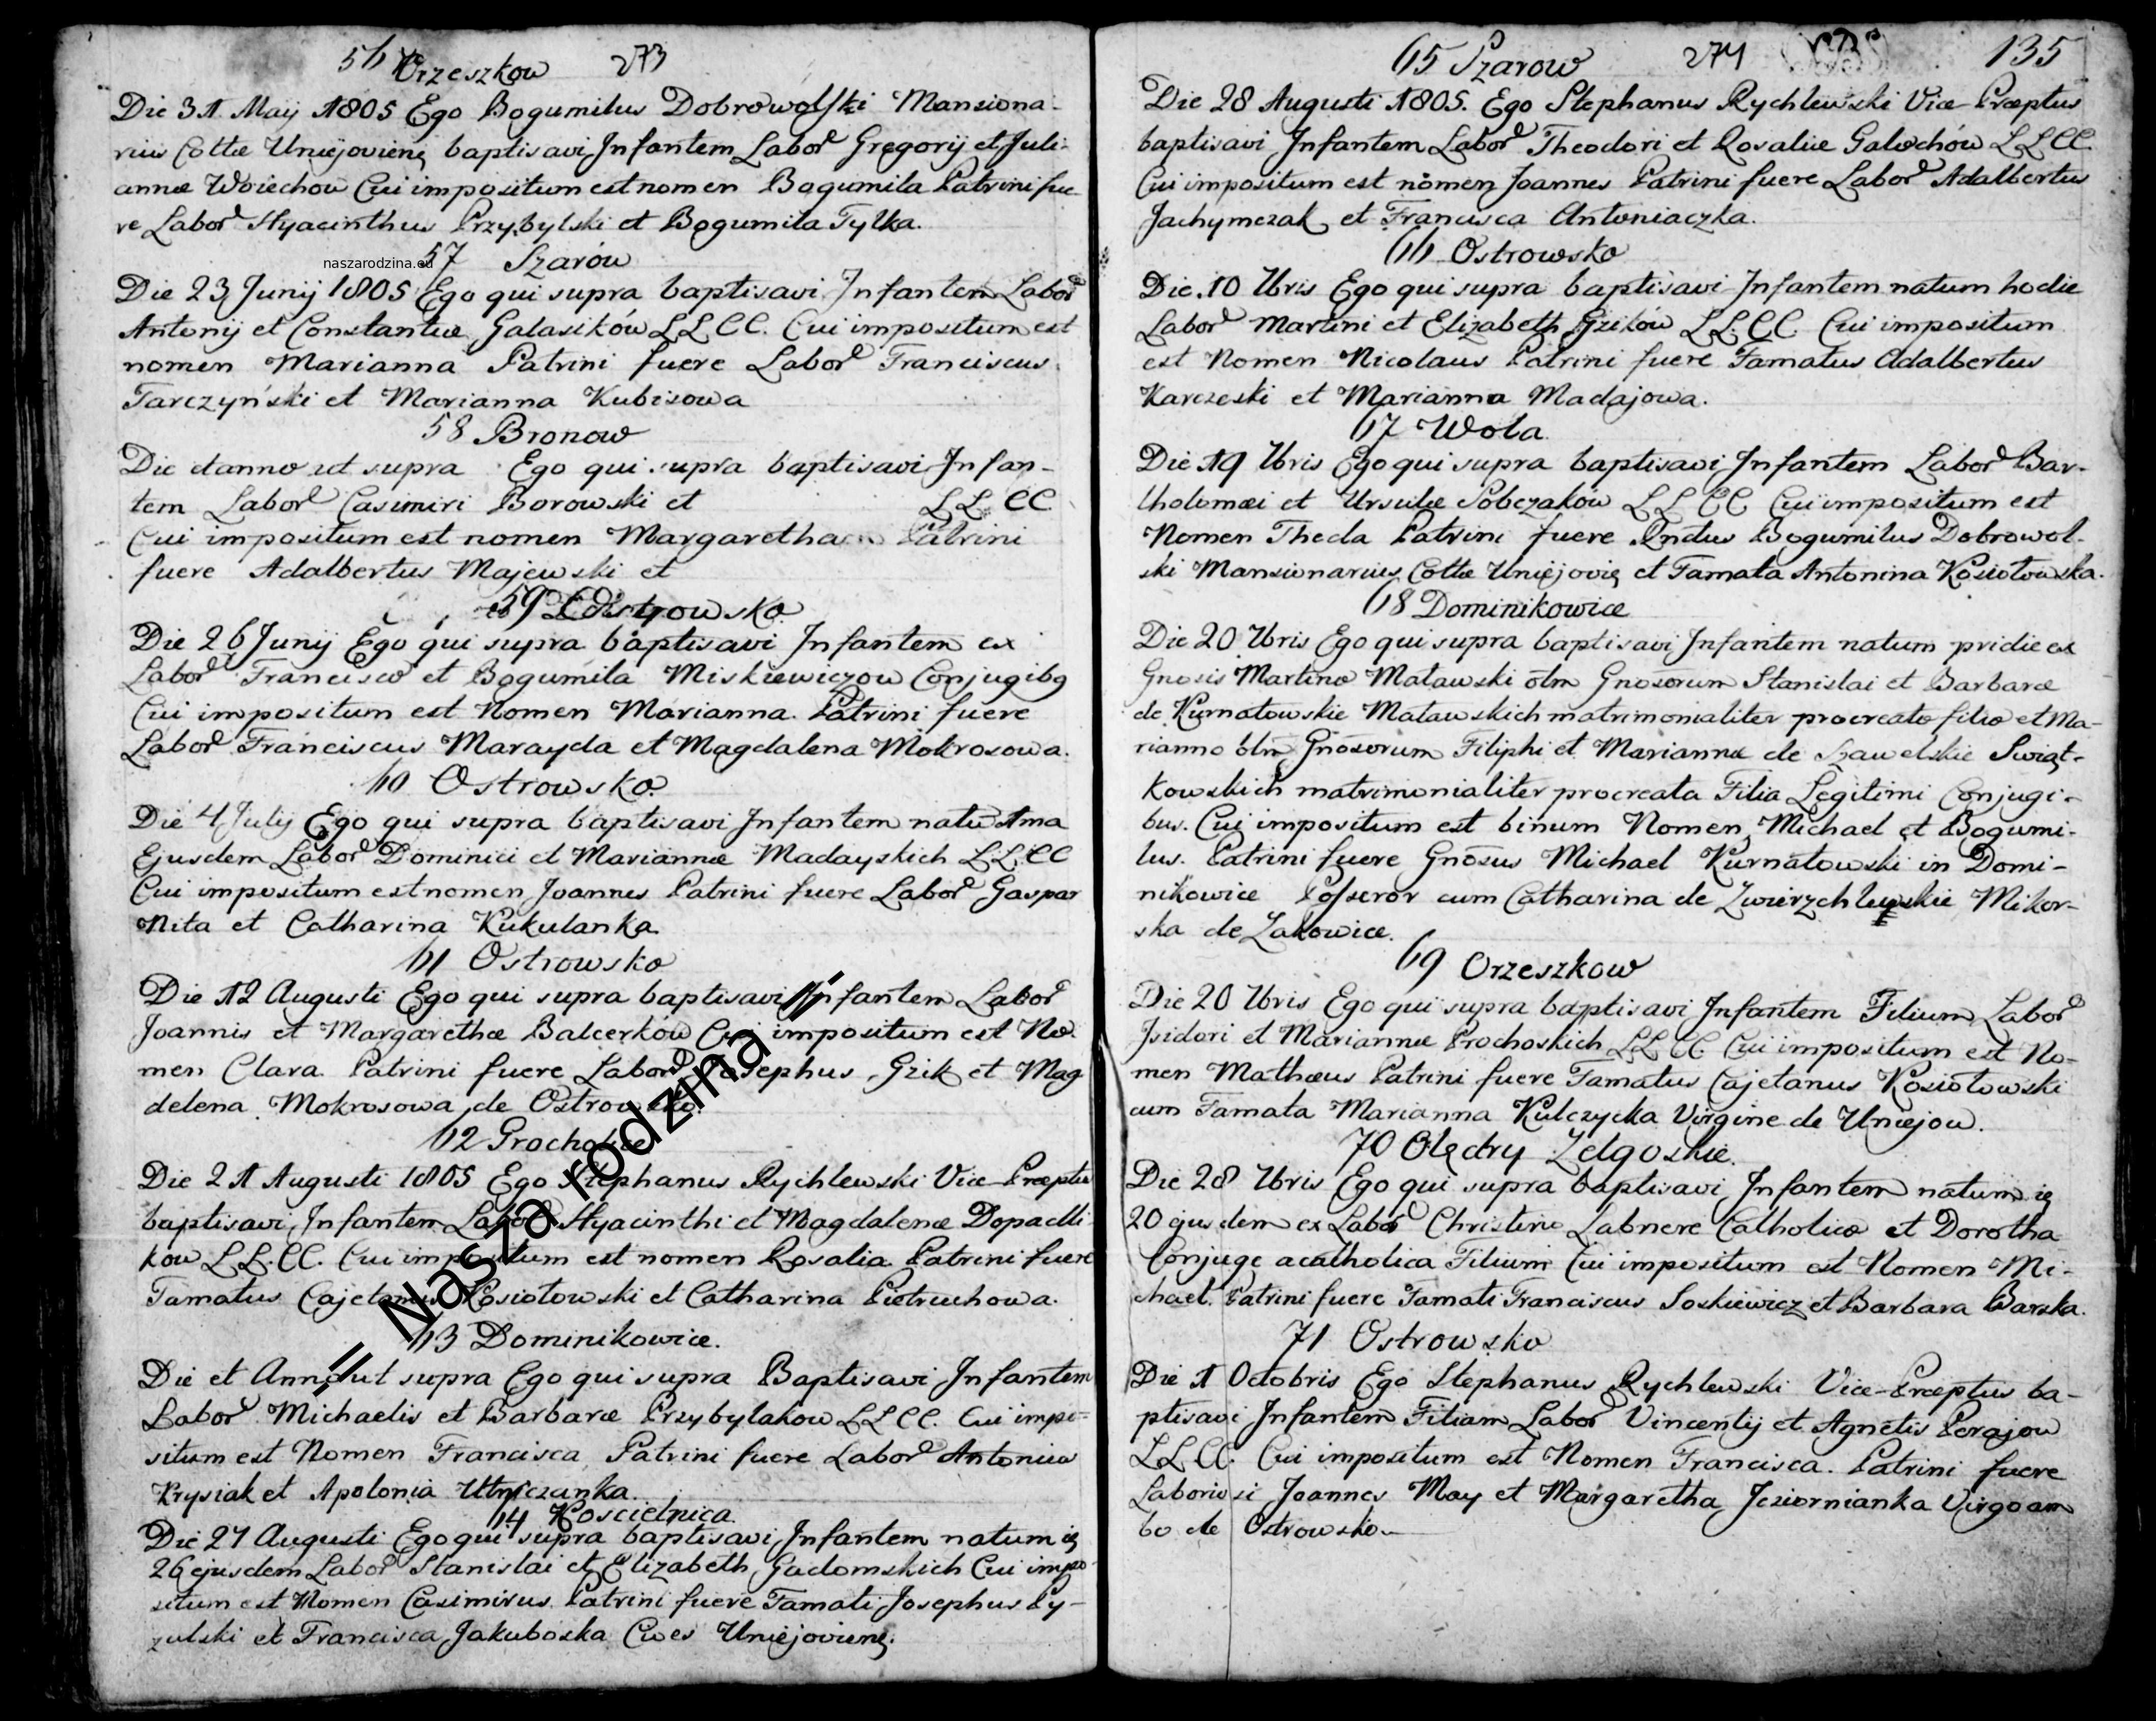 56 Orzeszkow 273
Die 31 Maij 1805 Ego Bogumilus Dobrowolski Mansiona-
rius Collæ Uniejovienę baptisavi Infantem Labor Gregorij et Juli-
annæ Woiechow Cui impositum est nomen Bogumila Patrini fue-
re Labor Hyacinthus Przybylski et Bogumila Tylka.
57 Szarów
naszarodzina.eu
Die 23 Junij 1805 Ego qui supra baptisavi Infantem Labor
Antonij et Constantiæ Galasików L L CC. Cui impositum est
nomen Marianna Patrini fuere Labor Franciscus
Tarczyński et Marianna Kubisowa
58 Bronow
Die et anno ut supra Ego qui supra baptisavi Infan-
tem Labor Casimiri Borowski et L L CC
Cui impositum est nomen Margaretha Patrini
fuere Adalbertus Majewski et
59 Ostrowsko
Die 26 Junij Ego qui supra baptisavi Infantem ex
Labor Francisco et Bogumila Miskiewiczow Conjugibq
Cui impositum est Nomen Marianna. Patrini fuere
Labor Franciscus Marayda et Magdalena Mokrosowa.
60 Ostrowsko
Die 4 Julij Ego qui supra baptisavi Infantem natū 1ma
Ejusdem Labor Dominici et Mariannæ Madayskich L L CC
Cui impositum est nomen Joannes Patrini fuere Labor Gaspar
Nita et Catharina Kukulanka
61 Ostrowsko
Die 12 Augusti Ego qui supra baptisavi Infantem Labor
Joannis et Margarethæ Balcerków Cui impositum est No-
men Clara Patrini fuere Labor Josephus Grik et Mag
delena Mokrosowa de Ostrowsko
62 Prochodze
Die 21 Augusti 1805 Ego Stephanus Rychlewski Vice-Præptus
baptisavi Infantem Labor Hyacinthi et Magdalenæ Dopadli-
kow L L. CC. Cui impositum est nomen Rosalia Patrini fuere
Famatus Cajetanus Kosiotowski et Catharina Pietruchowa.
63 Dominikowice.
Die et Anno ut supra Ego qui supra Baptisavi Infantem
Labor Michaelis et Barbaræ Przybylakow L L CC. Cui impo-
situm est Nomen Francisca Patrini fuere Labor Antonius
Krysiak et Apolonia
64 Koscielnica
Die 27 Augusti Ego qui supra baptisavi Infantem natum
26 ejusdem Labor Stanislai et Elizabeth Gadomskich Cui impo-
situm est Nomen Casimirus Patrini fuere Famati Josephus Py-
zulski et Francisca Jakuboska Cives Uniejovienę.
" Nasza rodzina "
65 Szarow 274 135
Die 28 Augusti 1805. Ego Stephanus Rychlewski Vice Præptus
baptisavi Infantem Labor Theodori et Rosaliæ Galochów L L CC.
Cui impositum est nomen Joannes Patrini fuere Labor Adalbertus
Jachymczak et Francisca Antoniaczka.
66 Ostrowsko
Die 10 7bris Ego qui supra baptisavi Infantem natum hodie
Labor Martini et Elizabeth Grików L L CC Cui impositum
est Nomen Nicolaus Patrini fuere Famatus Adalbertus
Karczeski et Marianna Madajowa.
67 Wola
Die 19 7bris Ego qui supra baptisavi Infantem Labor Bar-
tholomæi et Ursulæ Sobczaków L L CC Cui impositum est
Nomen Thecla Patrini fuere Rndus Bogumilus Dobrowol-
ski Mansionarius Collæ Uniejovię et Famata Antonina Kosiotowska.
68 Dominikowice
Die 20 7bris Ego qui supra baptisavi Infantem natum pridie ex
Gnosis Martino Matawski olm Gnosorum Stanislai et Barbaræ
de Kurnatowskie Matawskich matrimonialiter procreato filio et Ma-
rianno olm Gnosorum Filiphi et Mariannæ de Szawelskie Swiąt-
kowskich matrimonialiter procreata Filia Legitimi Conjugi-
bus. Cui impositum est binum Nomen Michael et Bogumi-
lus. Patrini fuere Gnosus Michael Kurnatowski in Domi-
nikowice Possesor cum Catharina de Zwierzchlewskie Mikor-
ska de Zakowice.
69 Orzeszkow
Die 20 7bris Ego qui supra baptisavi Infantem Filium Labor
Isidori et Mariannæ Prochoskich L L CC. Cui impositum est No-
men Mathæus Patrini fuere Famatus Cajetanus Kosiotowski
cum Famata Marianna Kulczycka Virgine de Uniejow.
70 Olędry Zelgoskie.
Die 28 7bris Ego qui supra baptisavi Infantem natum
20 ejusdem ex Labor Christino Labnere Catholico et Dorotha
Conjuge acatholica Filium Cui impositum est Nomen Mi-
chael. Patrini fuere Famati Franciscus Soskiewicz et Barbara Barska.
71 Ostrowsko
Die 1 Octobris Ego Stephanus Rychlewski Vice-Præptus ba-
ptisavi Infantem Filiam Labor Vincentij et Agnetis Perajow
L L CC. Cui impositum est Nomen Francisca. Patrini fuere
Laboriosi Joannes May et Margaretha Jeziornianka Virgo am
bo de Ostrowsko